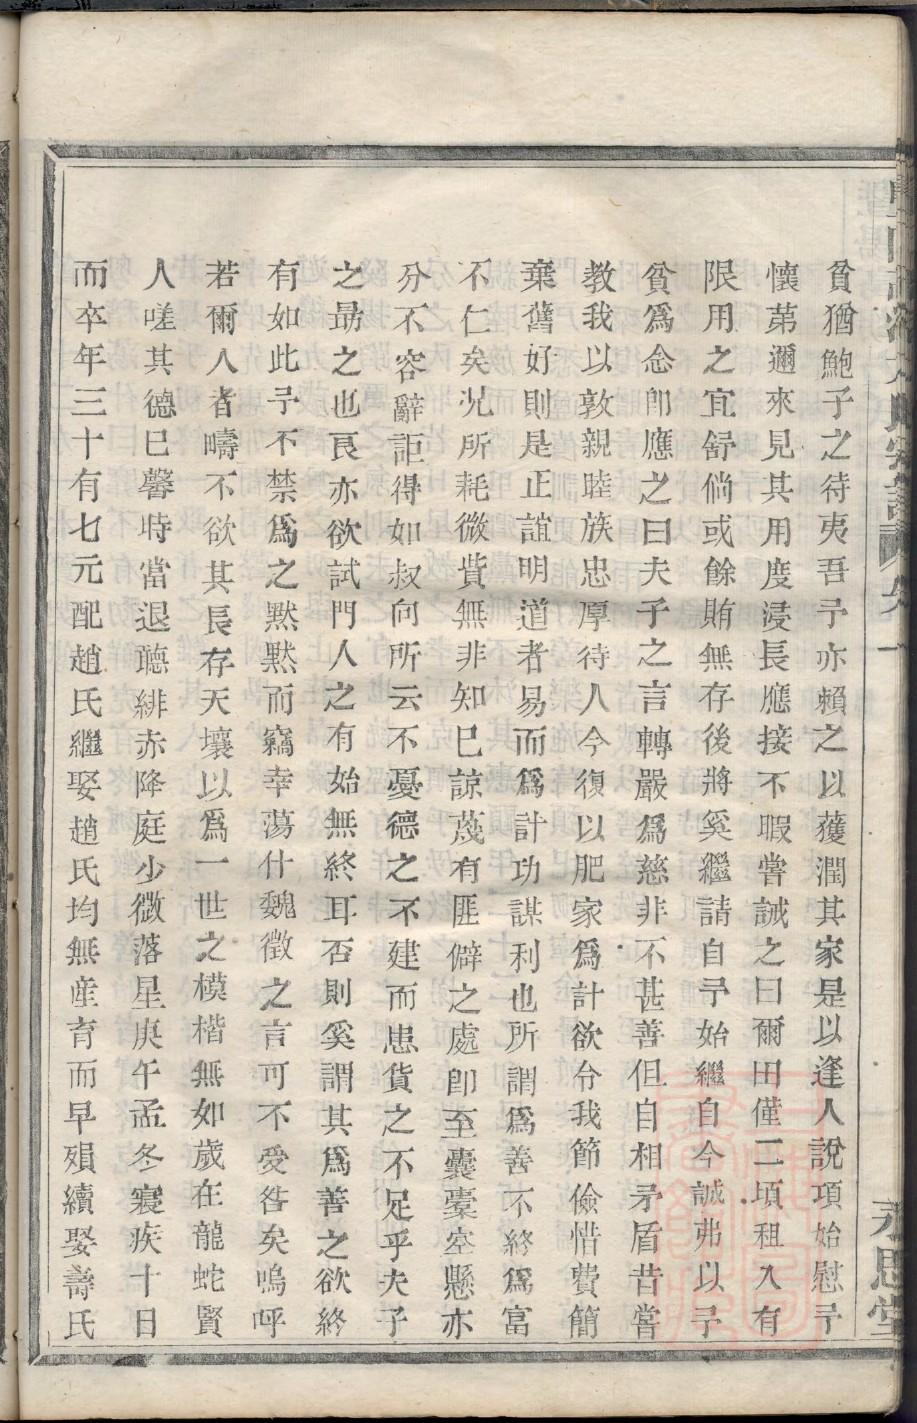 貧猶鮑子之待夷吾予亦賴之以獲潤其家是以逢人說項始慰予
懷第邇來見其用度浸長應接不暇嘗誡之曰爾田僅二頃租入有
限用之宜舒倘或餘賄無存後將奚繼請自予始繼自今誠弗以予
貧爲念卽應之曰夫子之言轉嚴爲慈非不甚善但自相矛盾昔嘗
教我以敦親睦族忠厚待人今復以肥家爲計欲令我節儉惜費簡
棄舊好則是正誼明道者易而爲計功謀利也所謂爲善不終爲富
不仁矣况所耗微貲無非知巳諒蔑有匪僻之處卽至囊橐空懸亦
分不容辭詎得如叔向所云不憂德之不建而患貨之不足乎夫子
之勗之也良亦欲試門人之有始無終耳否則奚謂其爲善之欲終
有如此予不禁爲之默默而竊幸蕩什魏徵之言可不爱咎矣嗚呼
若爾人者疇不欲其長存天壤以爲一世之模楷無如歲在龍蛇賢
人嗟其德巳馨時當退聽緋赤降庭少微落星庚午孟冬寢疾十日
而卒年三十有七元配趙氏繼娶趙氏均無産育而早殞續娶壽氏
永思堂